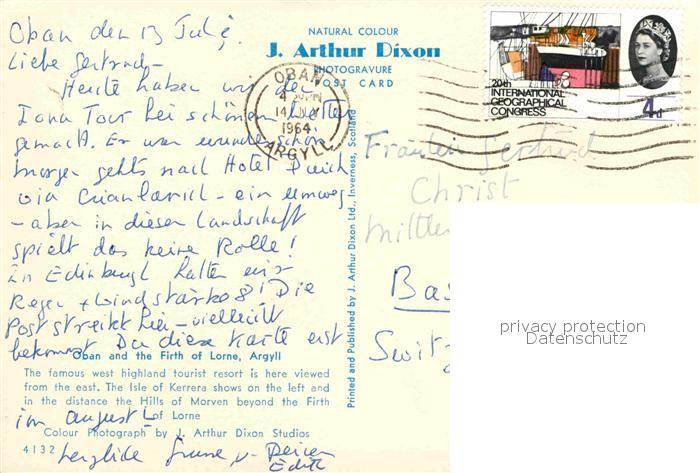 Oban den 13 Juli,
Liebe Gertrud –
Heute haben wir die
Iona Tour bei schönem Wetter
gemacht. Es war wunderschön
morgen gehts nach Hotel
via Crianlarich – ein Umweg
– aber in dieser Landschaft
spielt das keine Rolle!
In Edinburgh hatten wir
Regen + Windstärke 8! Die
Post streikt hier – vielleicht
bekommst Du diese Karte erst
im August!
herzliche Grüsse v. Deiner
Edith
NATURAL COLOUR
J. Arthur Dixon
PHOTOGRAVURE
POST CARD
OBAN
14 JLY
1964
ARGYLL
20th
INTERNATIONAL
GEOGRAPHICAL
CONGRESS
4d
Fräulein Gertrud
Christ
Bas
Switz
privacy protection
Datenschutz
Printed and Published by J. Arthur Dixon Ltd., Inverness, Scotland
Oban and the Firth of Lorne, Argyll
The famous west highland tourist resort is here viewed
from the east. The Isle of Kerrera shows on the left and
in the distance the Hills of Morven beyond the Firth
of Lorne
Colour Photograph by J. Arthur Dixon Studios
4132